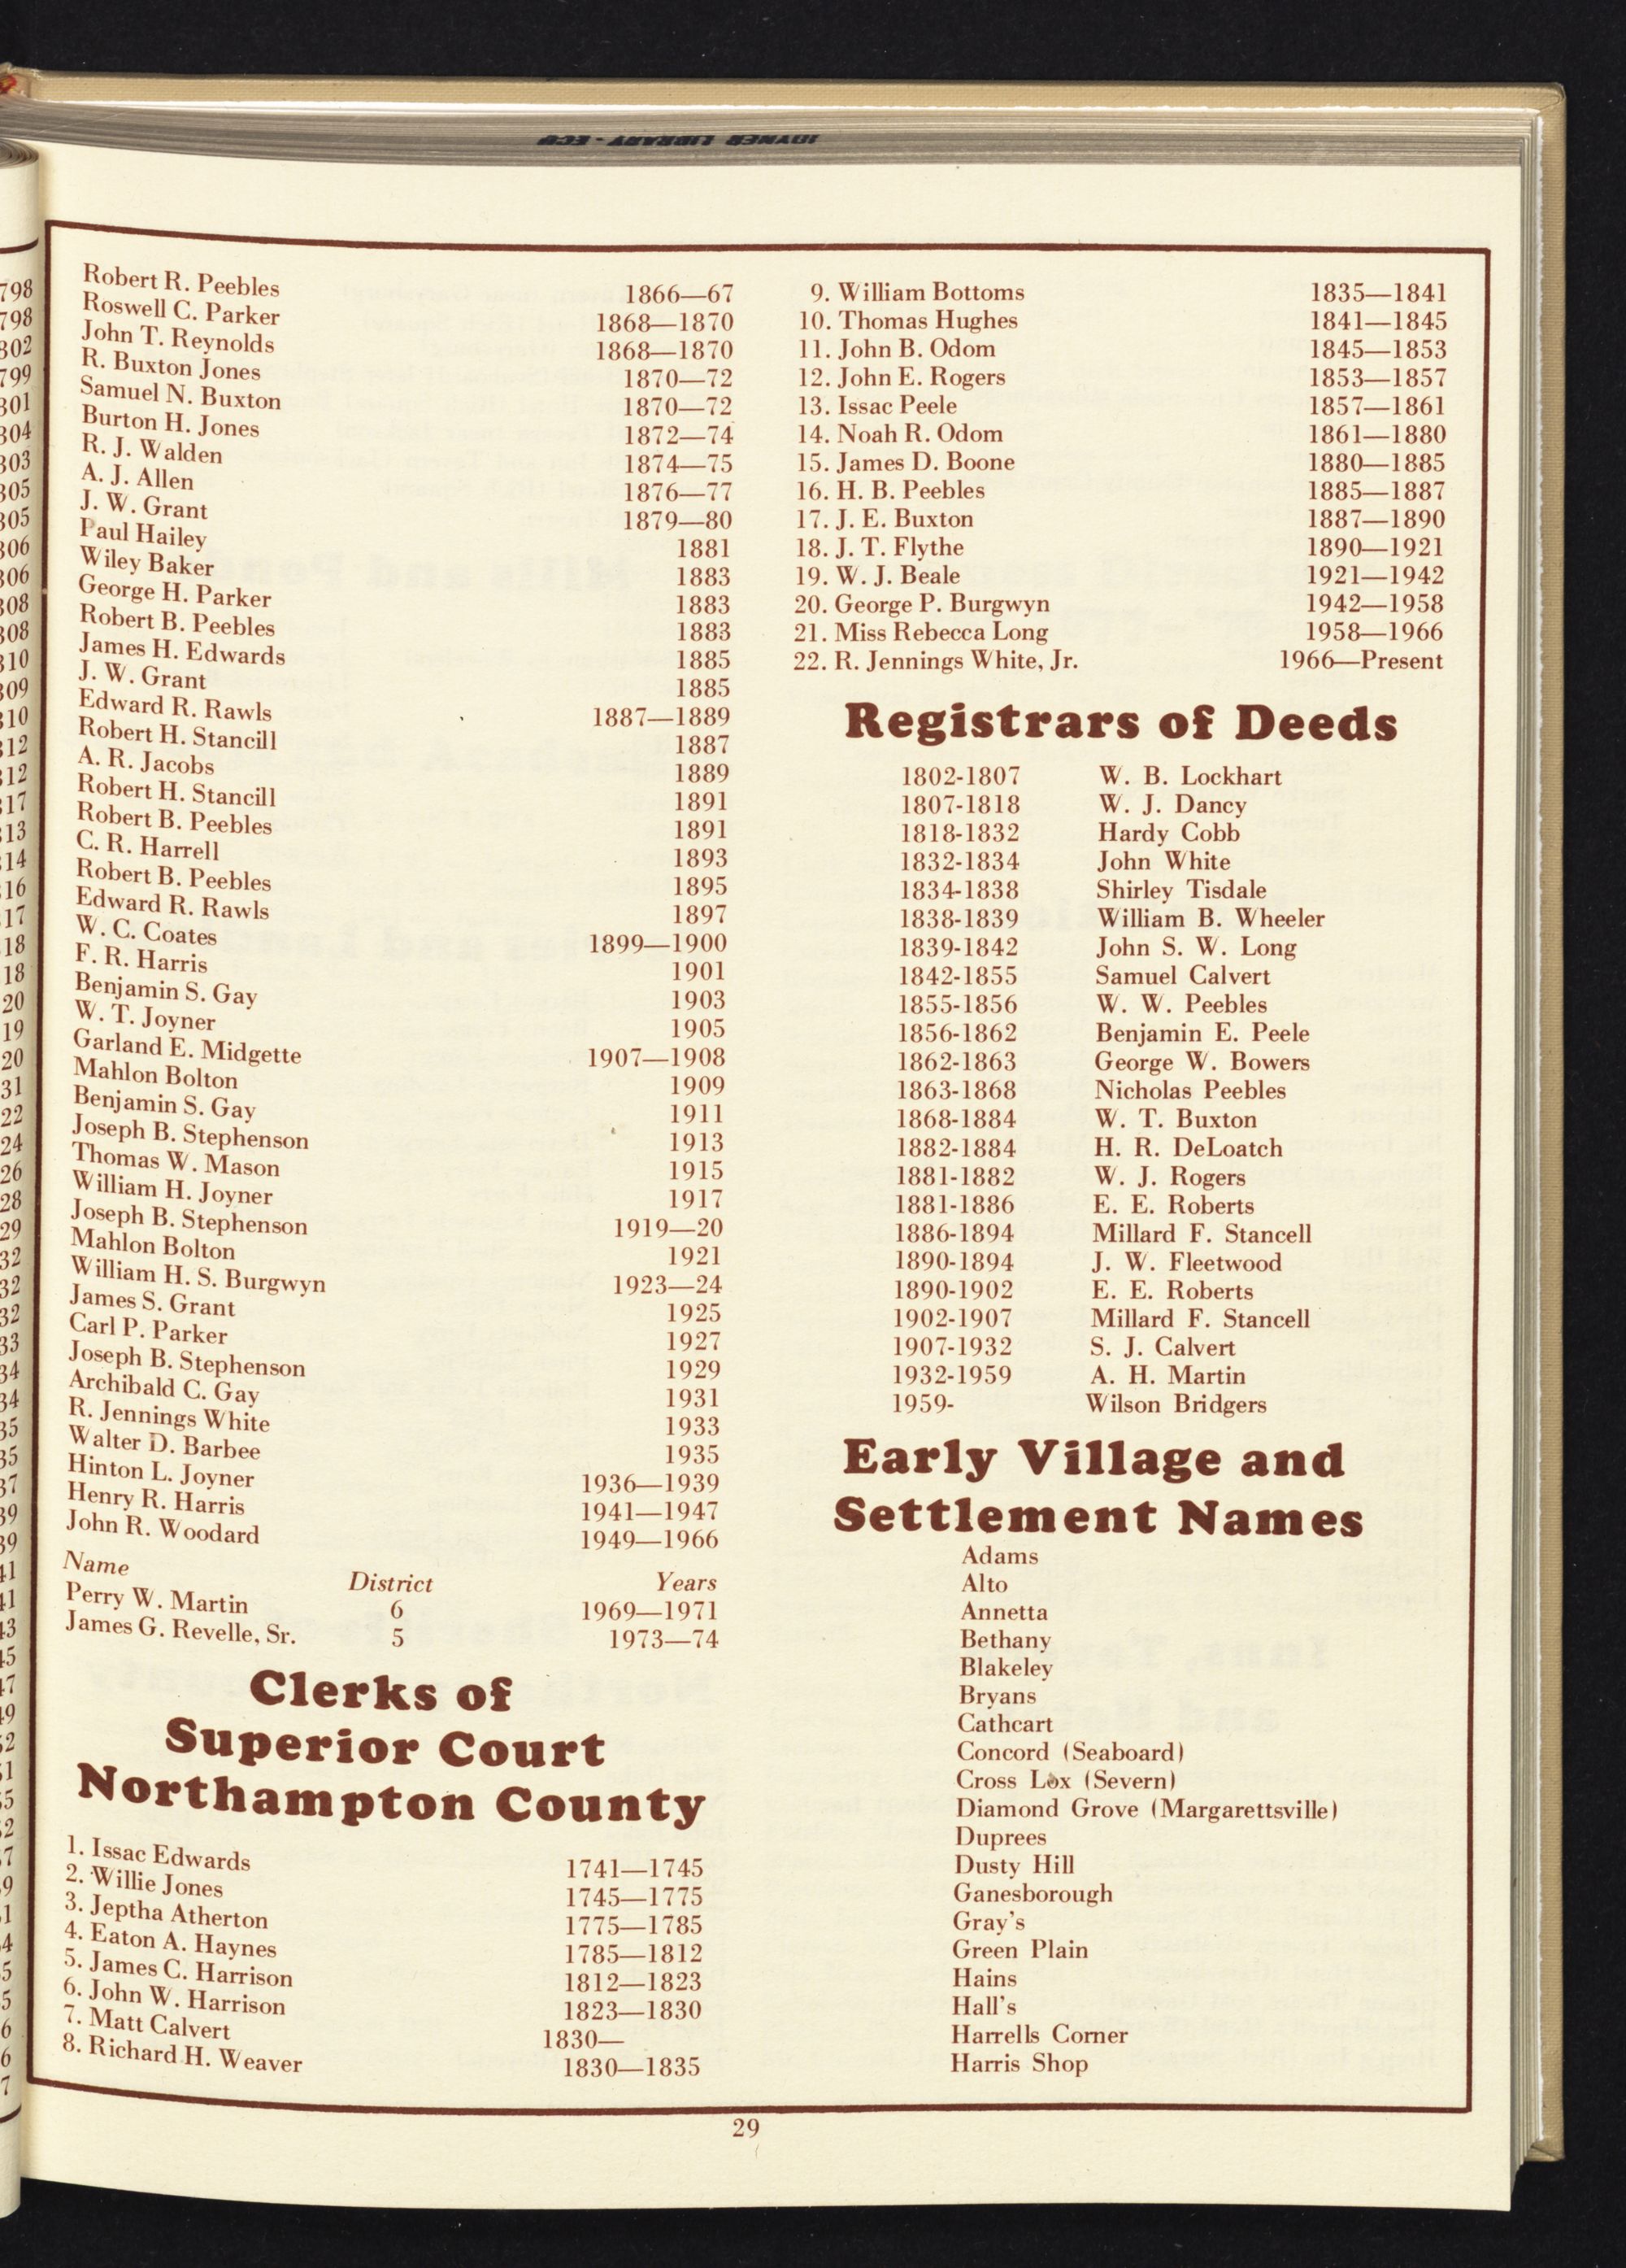 JOYNER LIBRARY - ECU
Robert R. Peebles 1866—67
Roswell C. Parker 1868—1870
John T. Reynolds 1868—1870
R. Buxton Jones 1870—72
Samuel N. Buxton 1870—72
Burton H. Jones 1872—74
R. J. Walden 1874—75
A. J. Allen 1876—77
J. W. Grant 1879—80
Paul Hailey 1881
Wiley Baker 1883
George H. Parker 1883
Robert B. Peebles 1883
James H. Edwards 1885
J. W. Grant 1885
Edward R. Rawls 1887—1889
Robert H. Stancill 1887
A. R. Jacobs 1889
Robert H. Stancill 1891
Robert B. Peebles 1891
C. R. Harrell 1893
Robert B. Peebles 1895
Edward R. Rawls 1897
W. C. Coates 1899—1900
F. R. Harris 1901
Benjamin S. Gay 1903
W. T. Joyner 1905
Garland E. Midgette 1907—1908
Mahlon Bolton 1909
Benjamin S. Gay 1911
Joseph B. Stephenson 1913
Thomas W. Mason 1915
William H. Joyner 1917
Joseph B. Stephenson 1919—20
Mahlon Bolton 1921
William H. S. Burgwyn 1923—24
James S. Grant 1925
Carl P. Parker 1927
Joseph B. Stephenson 1929
Archibald C. Gay 1931
R. Jennings White 1933
Walter D. Barbee 1935
Hinton L. Joyner 1936—1939
Henry R. Harris 1941—1947
John R. Woodard 1949—1966
Name District Years
Perry W. Martin 6 1969—1971
James G. Revelle, Sr. 5 1973—74
Clerks of
Superior Court
Northampton County
1. Issac Edwards 1741—1745
2. Willie Jones 1745—1775
3. Jeptha Atherton 1775—1785
4. Eaton A. Haynes 1785—1812
5. James C. Harrison 1812—1823
6. John W. Harrison 1823—1830
7. Matt Calvert 1830—
8. Richard H. Weaver 1830—1835
9. William Bottoms 1835—1841
10. Thomas Hughes 1841—1845
11. John B. Odom 1845—1853
12. John E. Rogers 1853—1857
13. Issac Peele 1857—1861
14. Noah R. Odom 1861—1880
15. James D. Boone 1880—1885
16. H. B. Peebles 1885—1887
17. J. E. Buxton 1887—1890
18. J. T. Flythe 1890—1921
19. W. J. Beale 1921—1942
20. George P. Burgwyn 1942—1958
21. Miss Rebecca Long 1958—1966
22. R. Jennings White, Jr. 1966—Present
Registrars of Deeds
1802-1807 W. B. Lockhart
1807-1818 W. J. Dancy
1818-1832 Hardy Cobb
1832-1834 John White
1834-1838 Shirley Tisdale
1838-1839 William B. Wheeler
1839-1842 John S. W. Long
1842-1855 Samuel Calvert
1855-1856 W. W. Peebles
1856-1862 Benjamin E. Peele
1862-1863 George W. Bowers
1863-1868 Nicholas Peebles
1868-1884 W. T. Buxton
1882-1884 H. R. DeLoatch
1881-1882 W. J. Rogers
1881-1886 E. E. Roberts
1886-1894 Millard F. Stancell
1890-1894 J. W. Fleetwood
1890-1902 E. E. Roberts
1902-1907 Millard F. Stancell
1907-1932 S. J. Calvert
1932-1959 A. H. Martin
1959- Wilson Bridgers
Early Village and
Settlement Names
Adams
Alto
Annetta
Bethany
Blakeley
Bryans
Cathcart
Concord (Seaboard)
Cross Lox (Severn)
Diamond Grove (Margarettsville)
Duprees
Dusty Hill
Ganesborough
Gray's
Green Plain
Hains
Hall's
Harrells Corner
Harris Shop
29